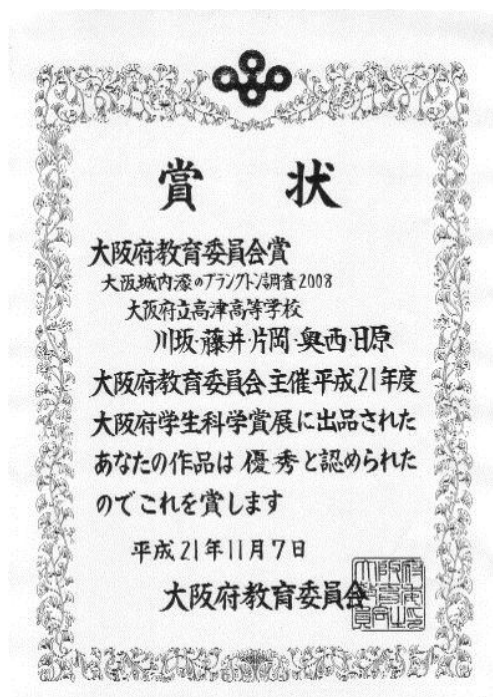 賞 状
大阪府教育委員会賞
大阪城内濠のプランクトン調査2008
大阪府立高津高等学校
川坂・藤井・片岡・奥西・日原
大阪府教育委員会主催平成21年度
大阪府学生科学賞展に出品された
あなたの作品は優秀と認められた
のでこれを賞します
平成21年11月7日
大阪府教育委員会